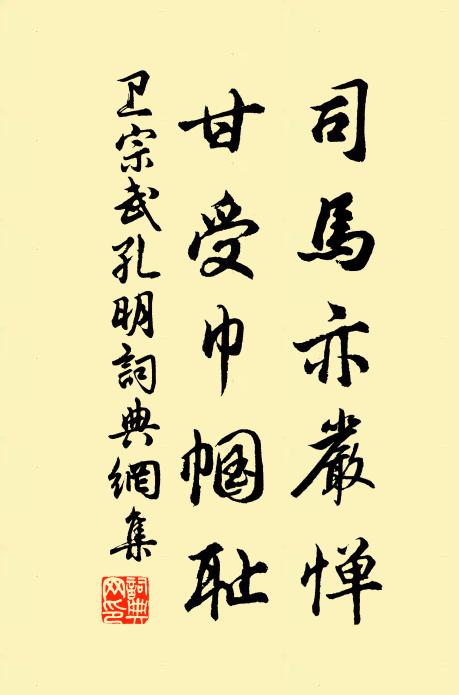 司馬亦嚴惮
甘受巾帼耻
卫宗武孔明詞典網集
詞典网印